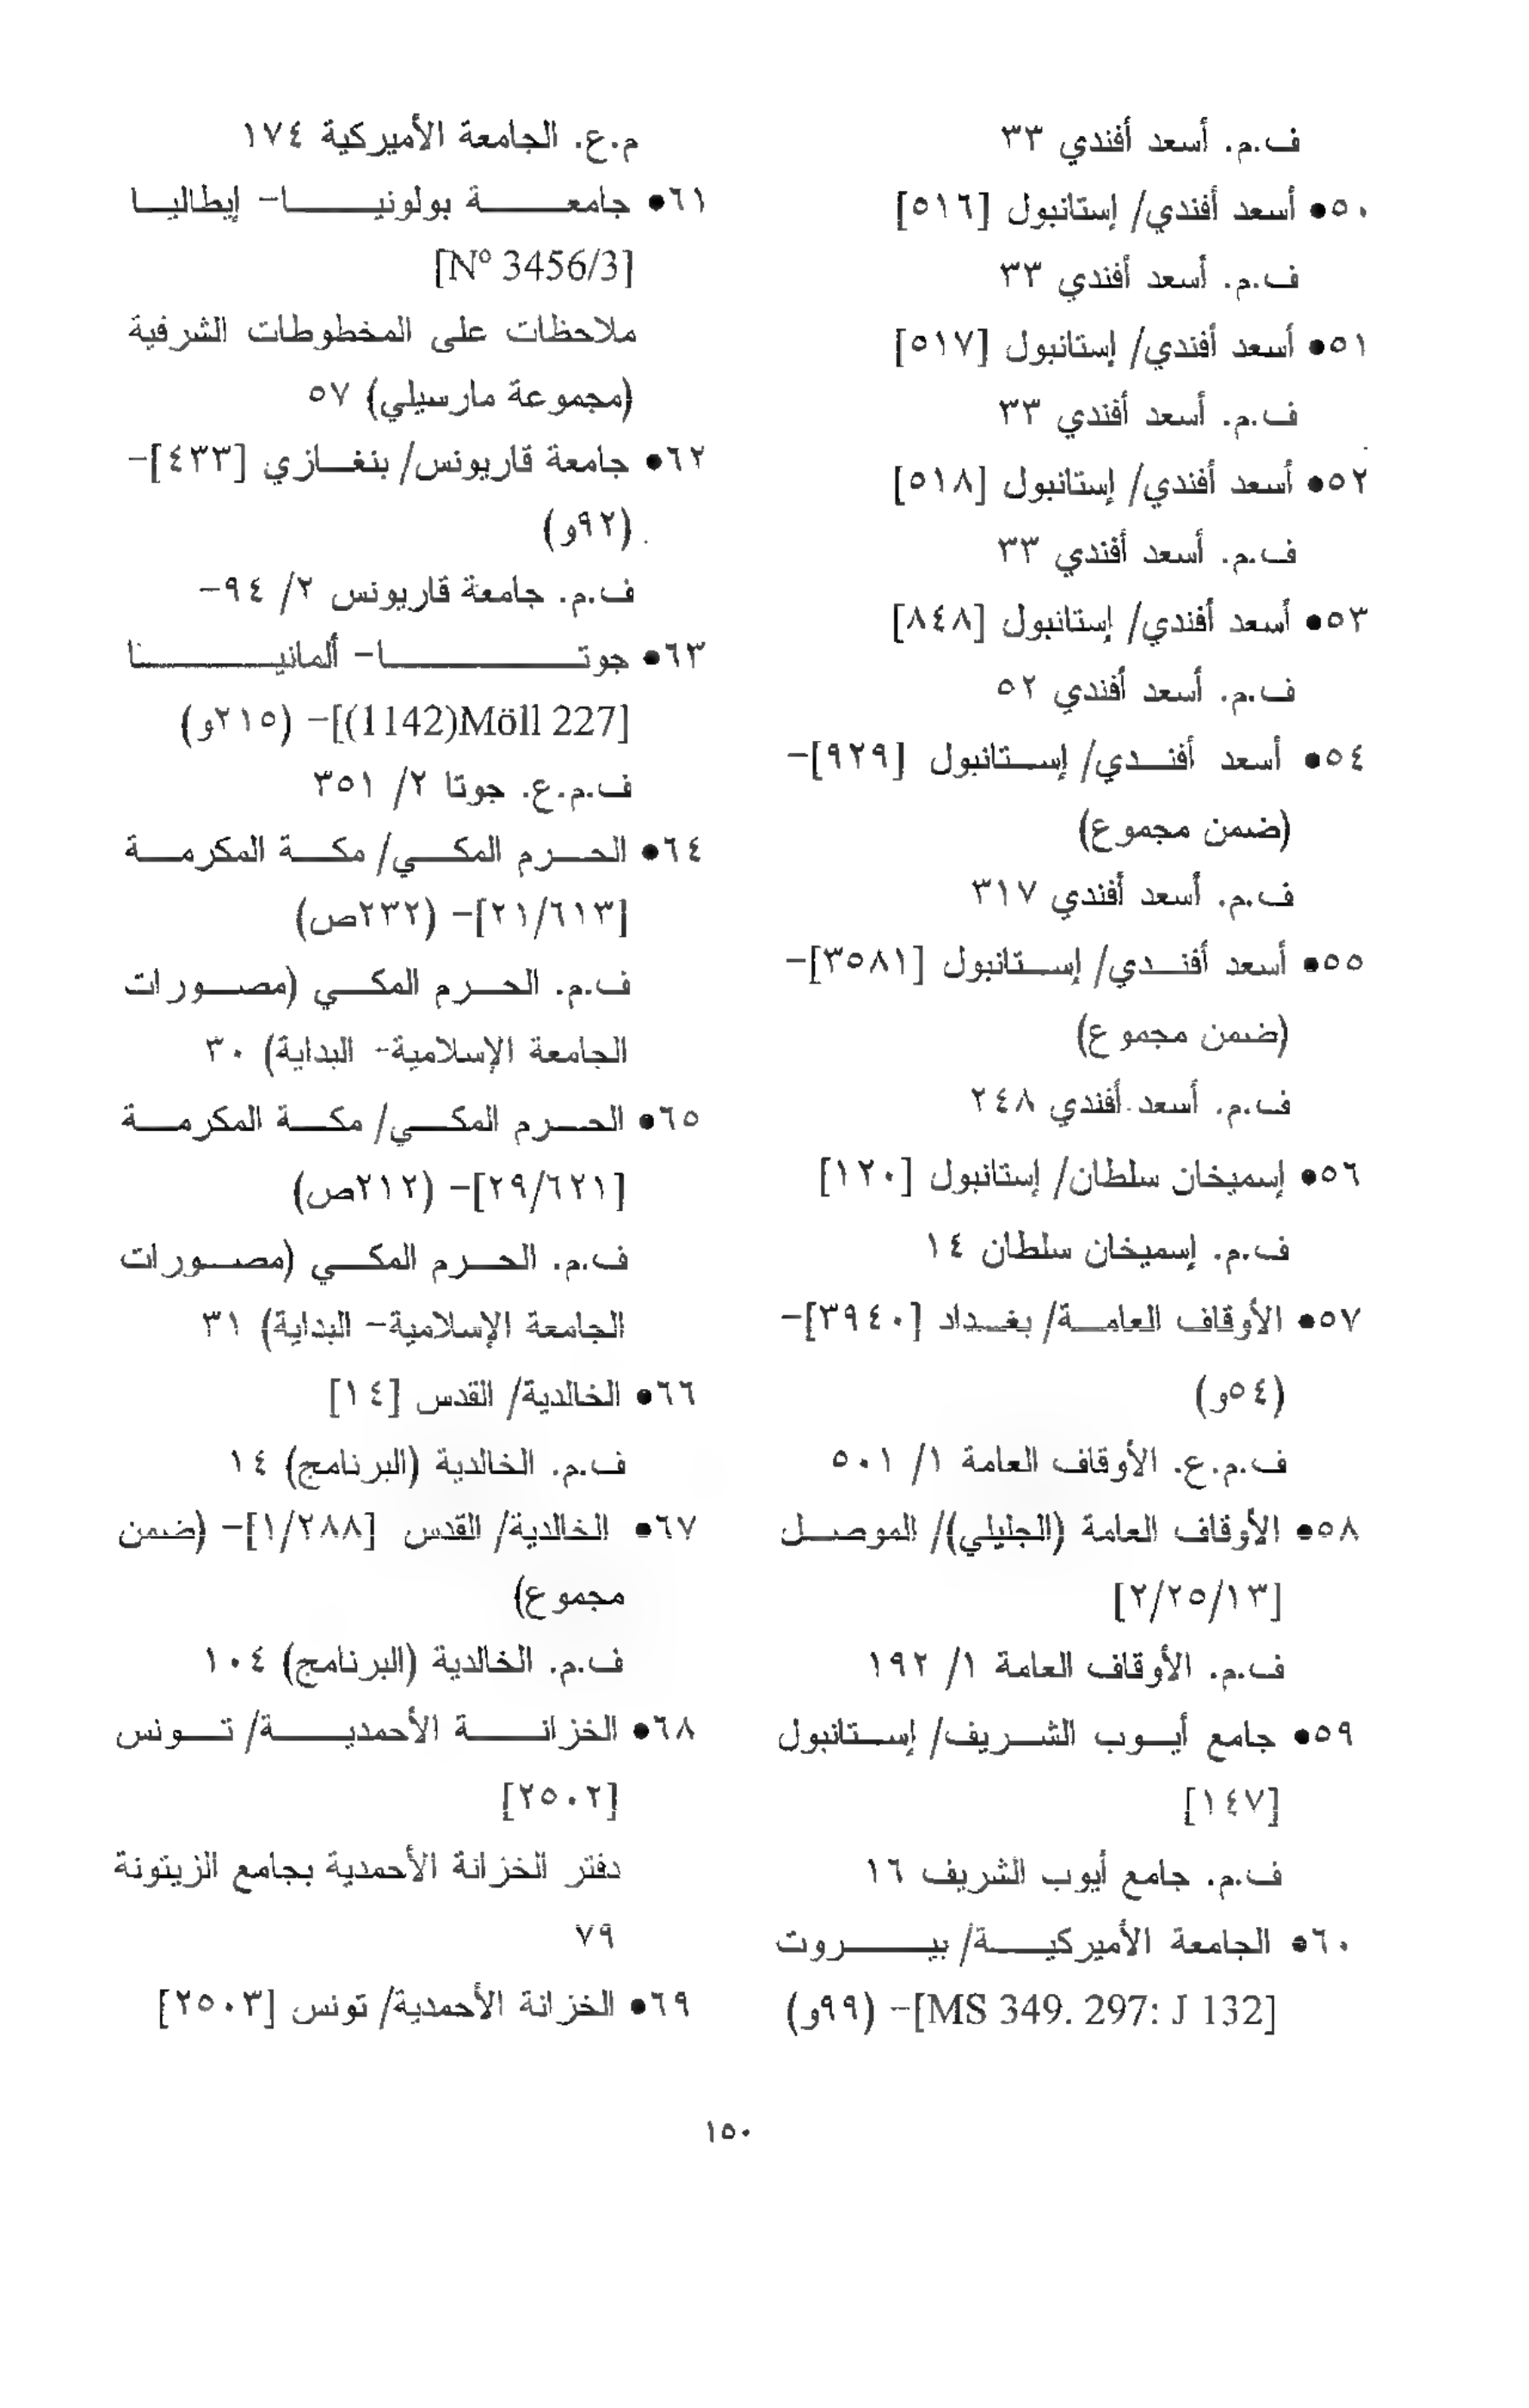 ف.م. أسعد أفندي ٣٣
٥٠• أسعد أفندي/ إستانبول [٥١٦]
ف.م. أسعد أفندي ٣٣
٥١• أسعد أفندي/ إستانبول [٥١٧]
ف.م. أسعد أفندي ٣٣
٥٢• أسعد أفندي/ إستانبول [٥١٨]
ف.م. أسعد أفندي ٣٣
٥٣• أسعد أفندي/ إستانبول [٨٤٨]
ف.م. أسعد أفندي ٥٢
٥٤• أسعد أفندي/ إستانبول [٩٢٩]-
(ضمن مجموع)
ف.م. أسعد أفندي ٣١٧
٥٥• أسعد أفندي/ إستانبول [٣٥٨١]-
(ضمن مجموع)
ف.م. أسعد أفندي ٢٤٨
٥٦• إسميخان سلطان/ إستانبول [١٢٠]
ف.م. إسميخان سلطان ١٤
٥٧• الأوقاف العامة/ بغداد [٣٩٤٠]-
(٥٤و)
ف.م.ع. الأوقاف العامة ١/ ٥٠١
٥٨• الأوقاف العامة (الجليلي)/ الموصل
[٢/٢٥/١٣]
ف.م. الأوقاف العامة ١/ ١٩٢
٥٩• جامع أيوب الشريف/ إستانبول
[١٤٧]
ف.م. جامع أيوب الشريف ١٦
٦٠• الجامعة الأميركية/ بيروت
[MS 349. 297: J 132]- (٩٩و)
م.ع. الجامعة الأميركية ١٧٤
٦١• جامعة بولونيا- إيطاليا
[Nº 3456/3]
ملاحظات على المخطوطات الشرفية
(مجموعة مارسيلي) ٥٧
٦٢• جامعة قاريونس/ بنغازي [٤٣٣]-
(٩٢و)
ف.م. جامعة قاريونس ٢/ ٩٤-
٦٣• جوتا- ألمانيا
[(1142)Möll 227]- (٢١٥و)
ف.م.ع. جوتا ٢/ ٣٥١
٦٤• الحرم المكي/ مكة المكرمة
[٢١/٦١٣]- (٢٣٢ص)
ف.م. الحرم المكي (مصورات
الجامعة الإسلامية- البداية) ٣٠
٦٥• الحرم المكي/ مكة المكرمة
[٢٩/٦٢١]- (٢١٢ص)
ف.م. الحرم المكي (مصورات
الجامعة الإسلامية- البداية) ٣١
٦٦• الخالدية/ القدس [١٤]
ف.م. الخالدية (البرنامج) ١٤
٦٧• الخالدية/ القدس [١/٢٨٨]- (ضمن
مجموع)
ف.م. الخالدية (البرنامج) ١٠٤
٦٨• الخزانة الأحمدية/ تونس
[٢٥٠٢]
دفتر الخزانة الأحمدية بجامع الزيتونة
٧٩
٦٩• الخزانة الأحمدية/ تونس [٢٥٠٣]
١٥٠